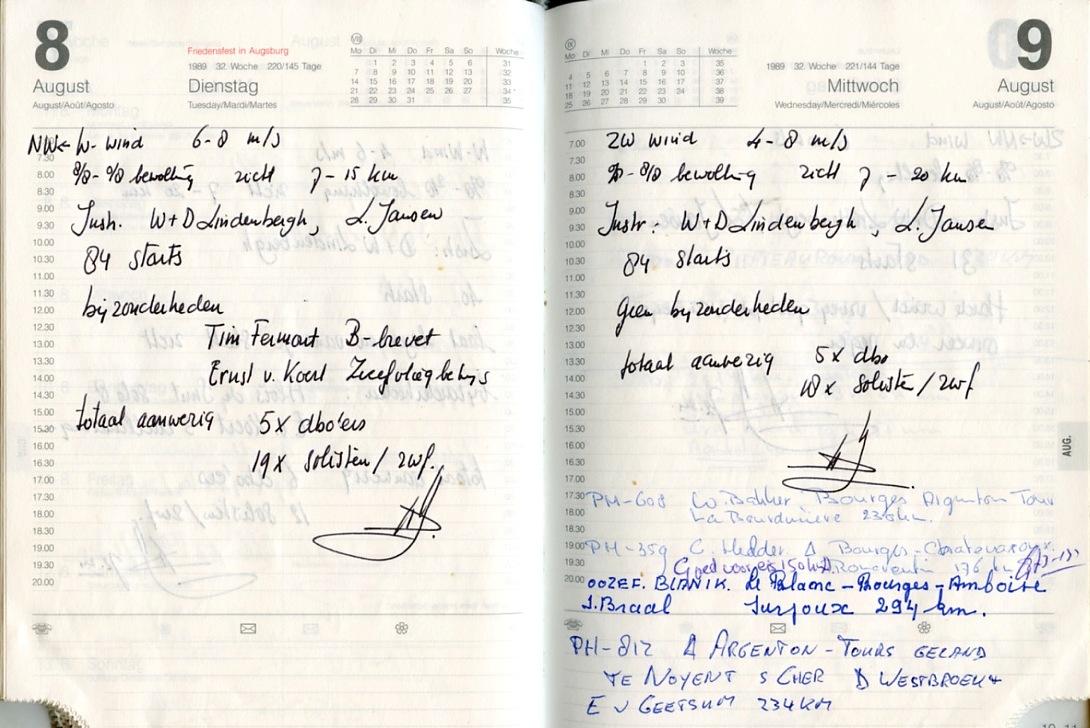 8
August
August/Août/Agosto
Friedensfest in Augsburg
1989 32. Woche 220/145 Tage
Dienstag
Tuesday/Mardi/Martes
VIII
Mo Di Mi Do Fr Sa So Woche
1 2 3 4 5 6 31
7 8 9 10 11 12 13 32
14 15 16 17 18 19 20 33
21 22 23 24 25 26 27 34
28 29 30 31 35
NW ← W- wind 6-8 m/s
8/8 - 8/8 bewolking zicht 7 - 15 km
Instr. W+D Lindenbergh, L. Jansen
84 starts
bijzonderheden
Tim Fermont B-brevet
Ernst v. Koert Zweefvliegbewijs
totaal aanwezig 5x dbo'ers
19x solisten / zwf.
7.30
8.00
8.30
9.00
9.30
10.00
10.30
11.00
11.30
12.00
12.30
13.00
13.30
14.00
14.30
15.00
15.30
16.00
16.30
17.00
17.30
18.00
18.30
19.00
19.30
20.00
9
August
August/Août/Agosto
1989 32. Woche 221/144 Tage
Mittwoch
Wednesday/Mercredi/Miércoles
IX
Mo Di Mi Do Fr Sa So Woche
1 2 3 35
4 5 6 7 8 9 10 36
11 12 13 14 15 16 17 37
18 19 20 21 22 23 24 38
25 26 27 28 29 30 39
ZW wind 4-8 m/s
bewolking zicht 7 - 20 km
Instr: W+D Lindenbergh, L. Jansen
84 starts
Geen bijzonderheden
totaal aanwezig 5x dbo
18x solisten / zwf
7.00
7.30
8.00
8.30
9.00
9.30
10.00
10.30
11.00
11.30
12.00
12.30
13.00
13.30
14.00
14.30
15.00
15.30
16.00
16.30
17.00
17.30
18.00
18.30
19.00
19.30
20.00
AUG.
PH-608 W. Bakker Bourges Argenton Tour
La Bourdinière 236 km.
PH-359 C. Hedder. Δ Bourges-
Goed voor 176 km
OOZEF. BLANIK. Le Blanc - Bourges - Amboise
J. Braal Surjoux 294 km.
PH-812 Δ ARGENTON - TOURS GELAND
TE NOYENT S CHER D WESTBROEK+
E V GEETSUM 234 KM